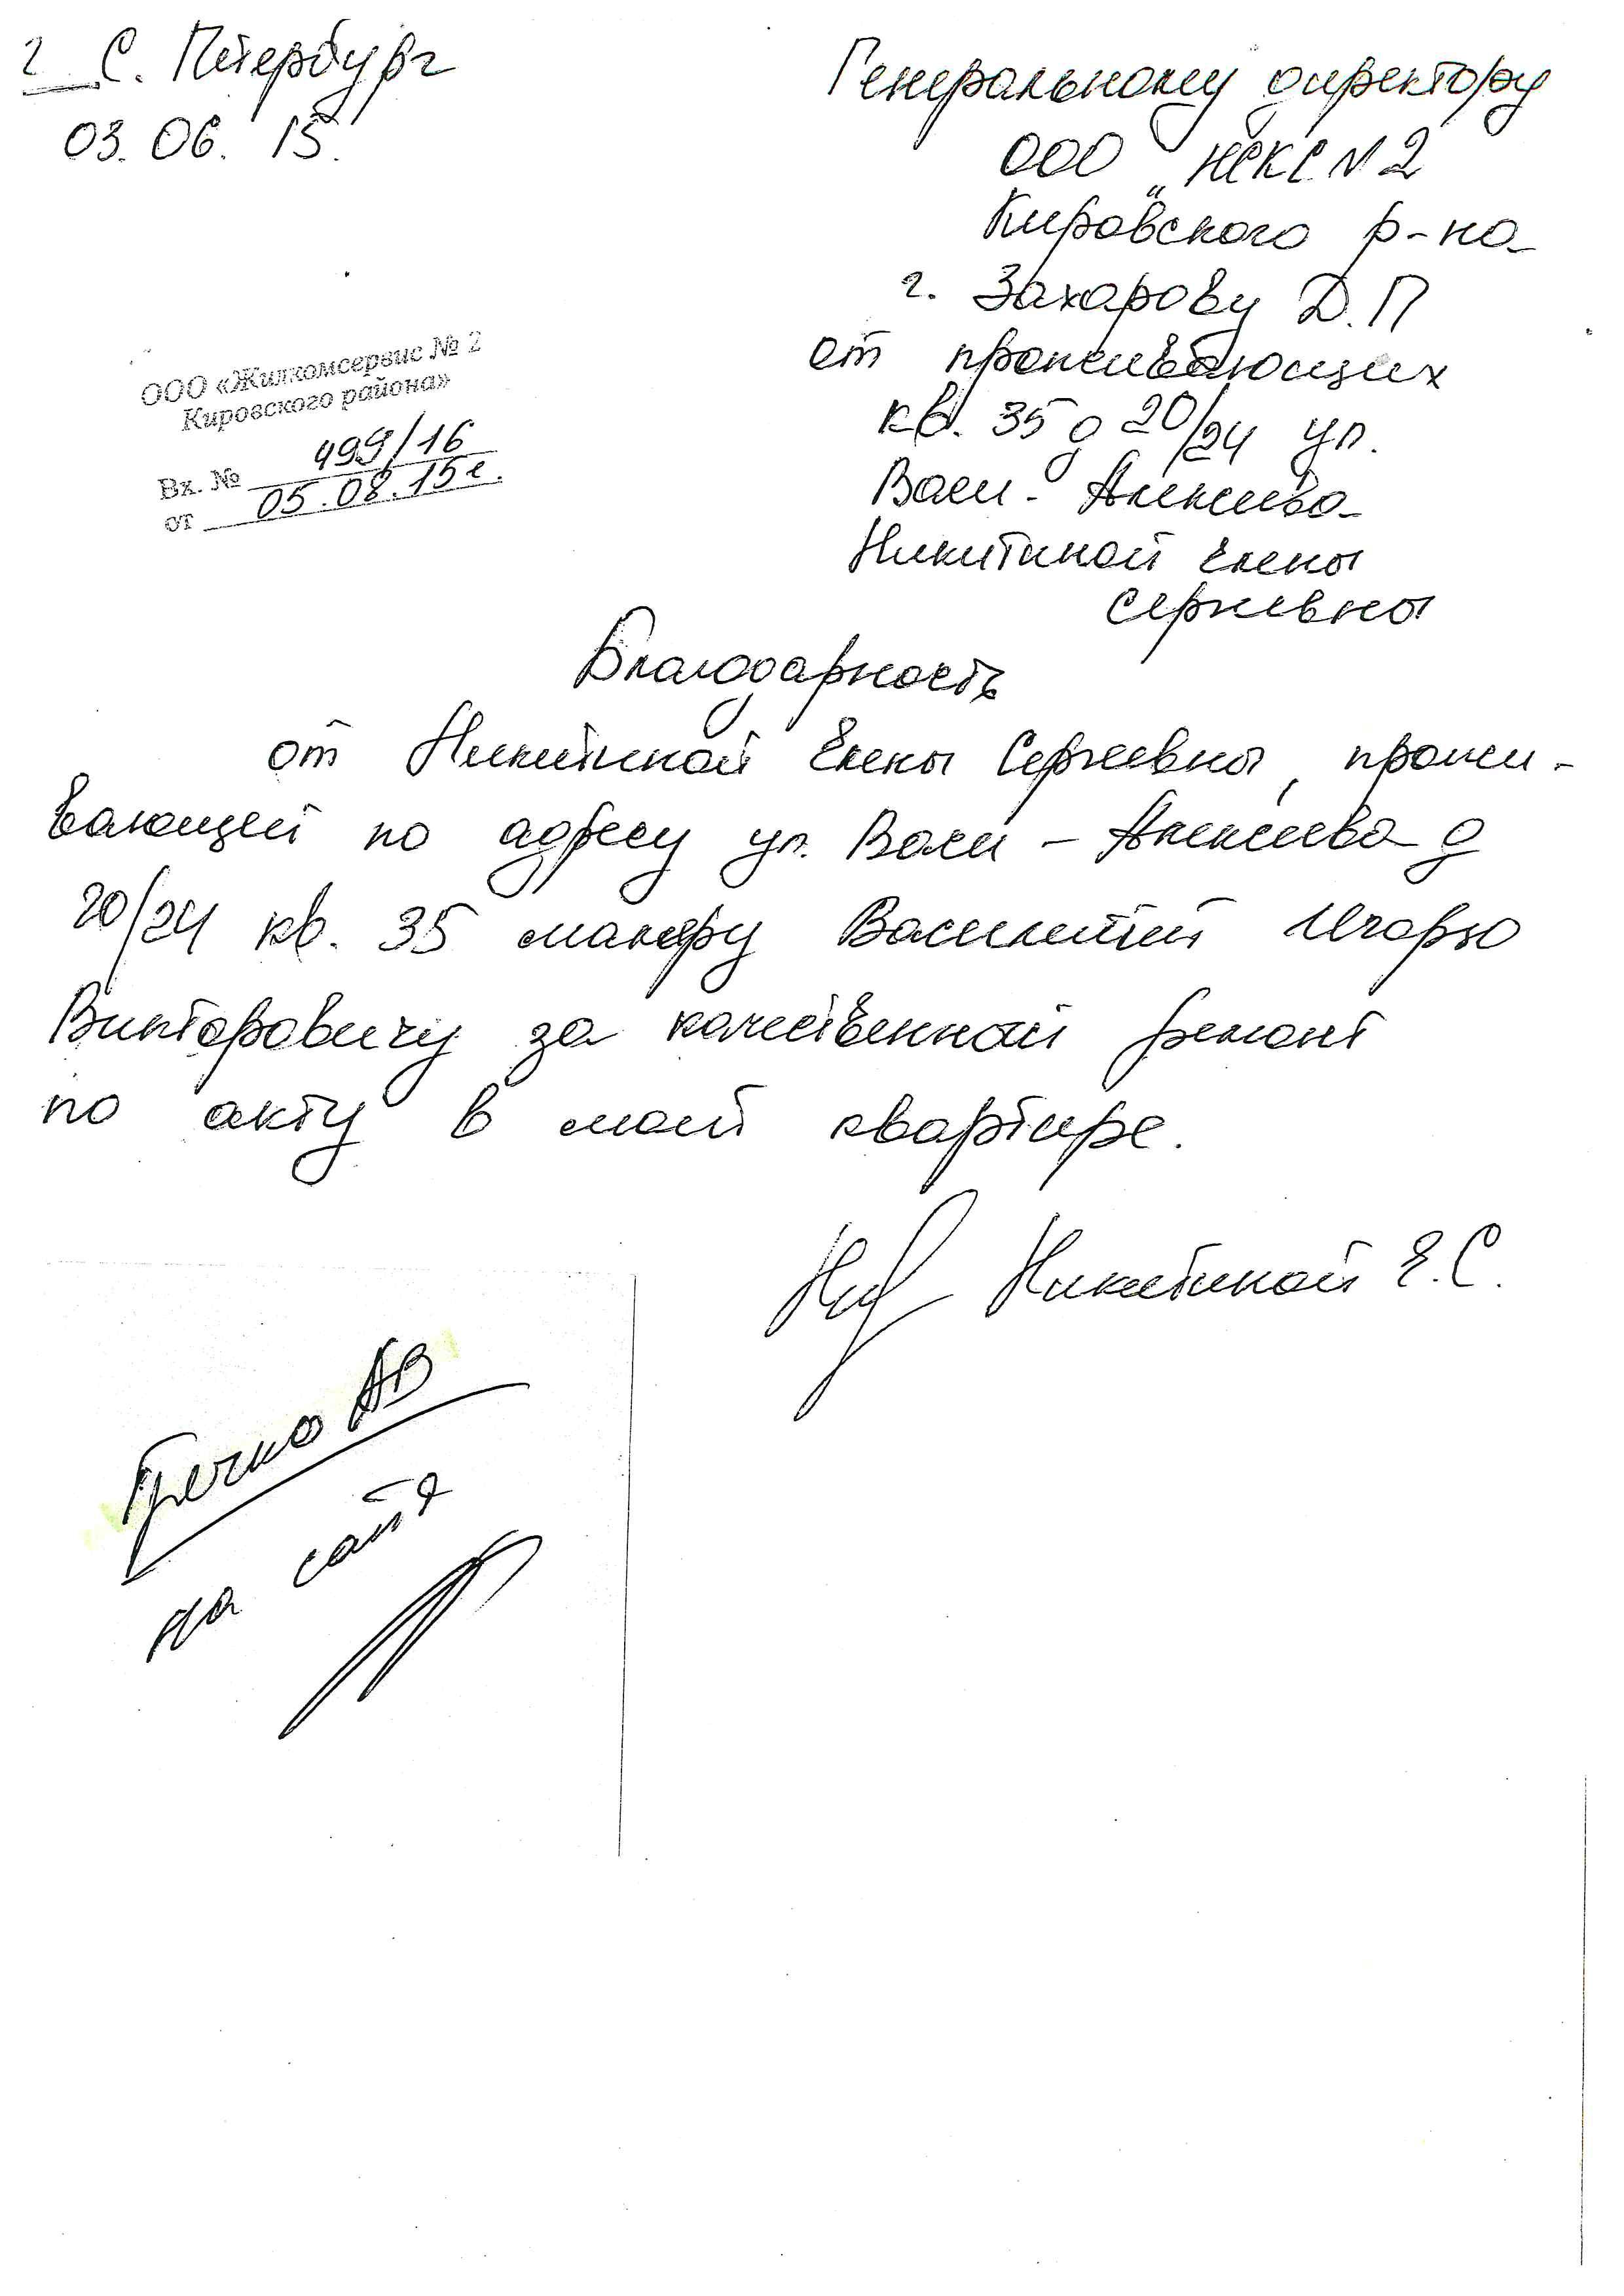 г. С. Петербург
03. 06. 15.
Генеральному директору
ООО „ЖКС N 2
Кировского р-на
г. Захарову Д.П
от проживающих
кв. 35 д 20/24 ул.
Васи - Алексеева
Никитиной Елены
Сергеевны
ООО «Жилкомсервис № 2
Кировского района»
Вх. № 499/16
от 05.08.15г.
Благодарность
от Никитиной Елены Сергеевны, прожи-
вающей по адресу ул. Васи - Алексеева д
20/24 кв. 35 маляру Василий Игорю
Викторовичу за качественной ремонт
по акту в моей квартире.
Никитиной Е.С.
Гречко АВ
на сайт